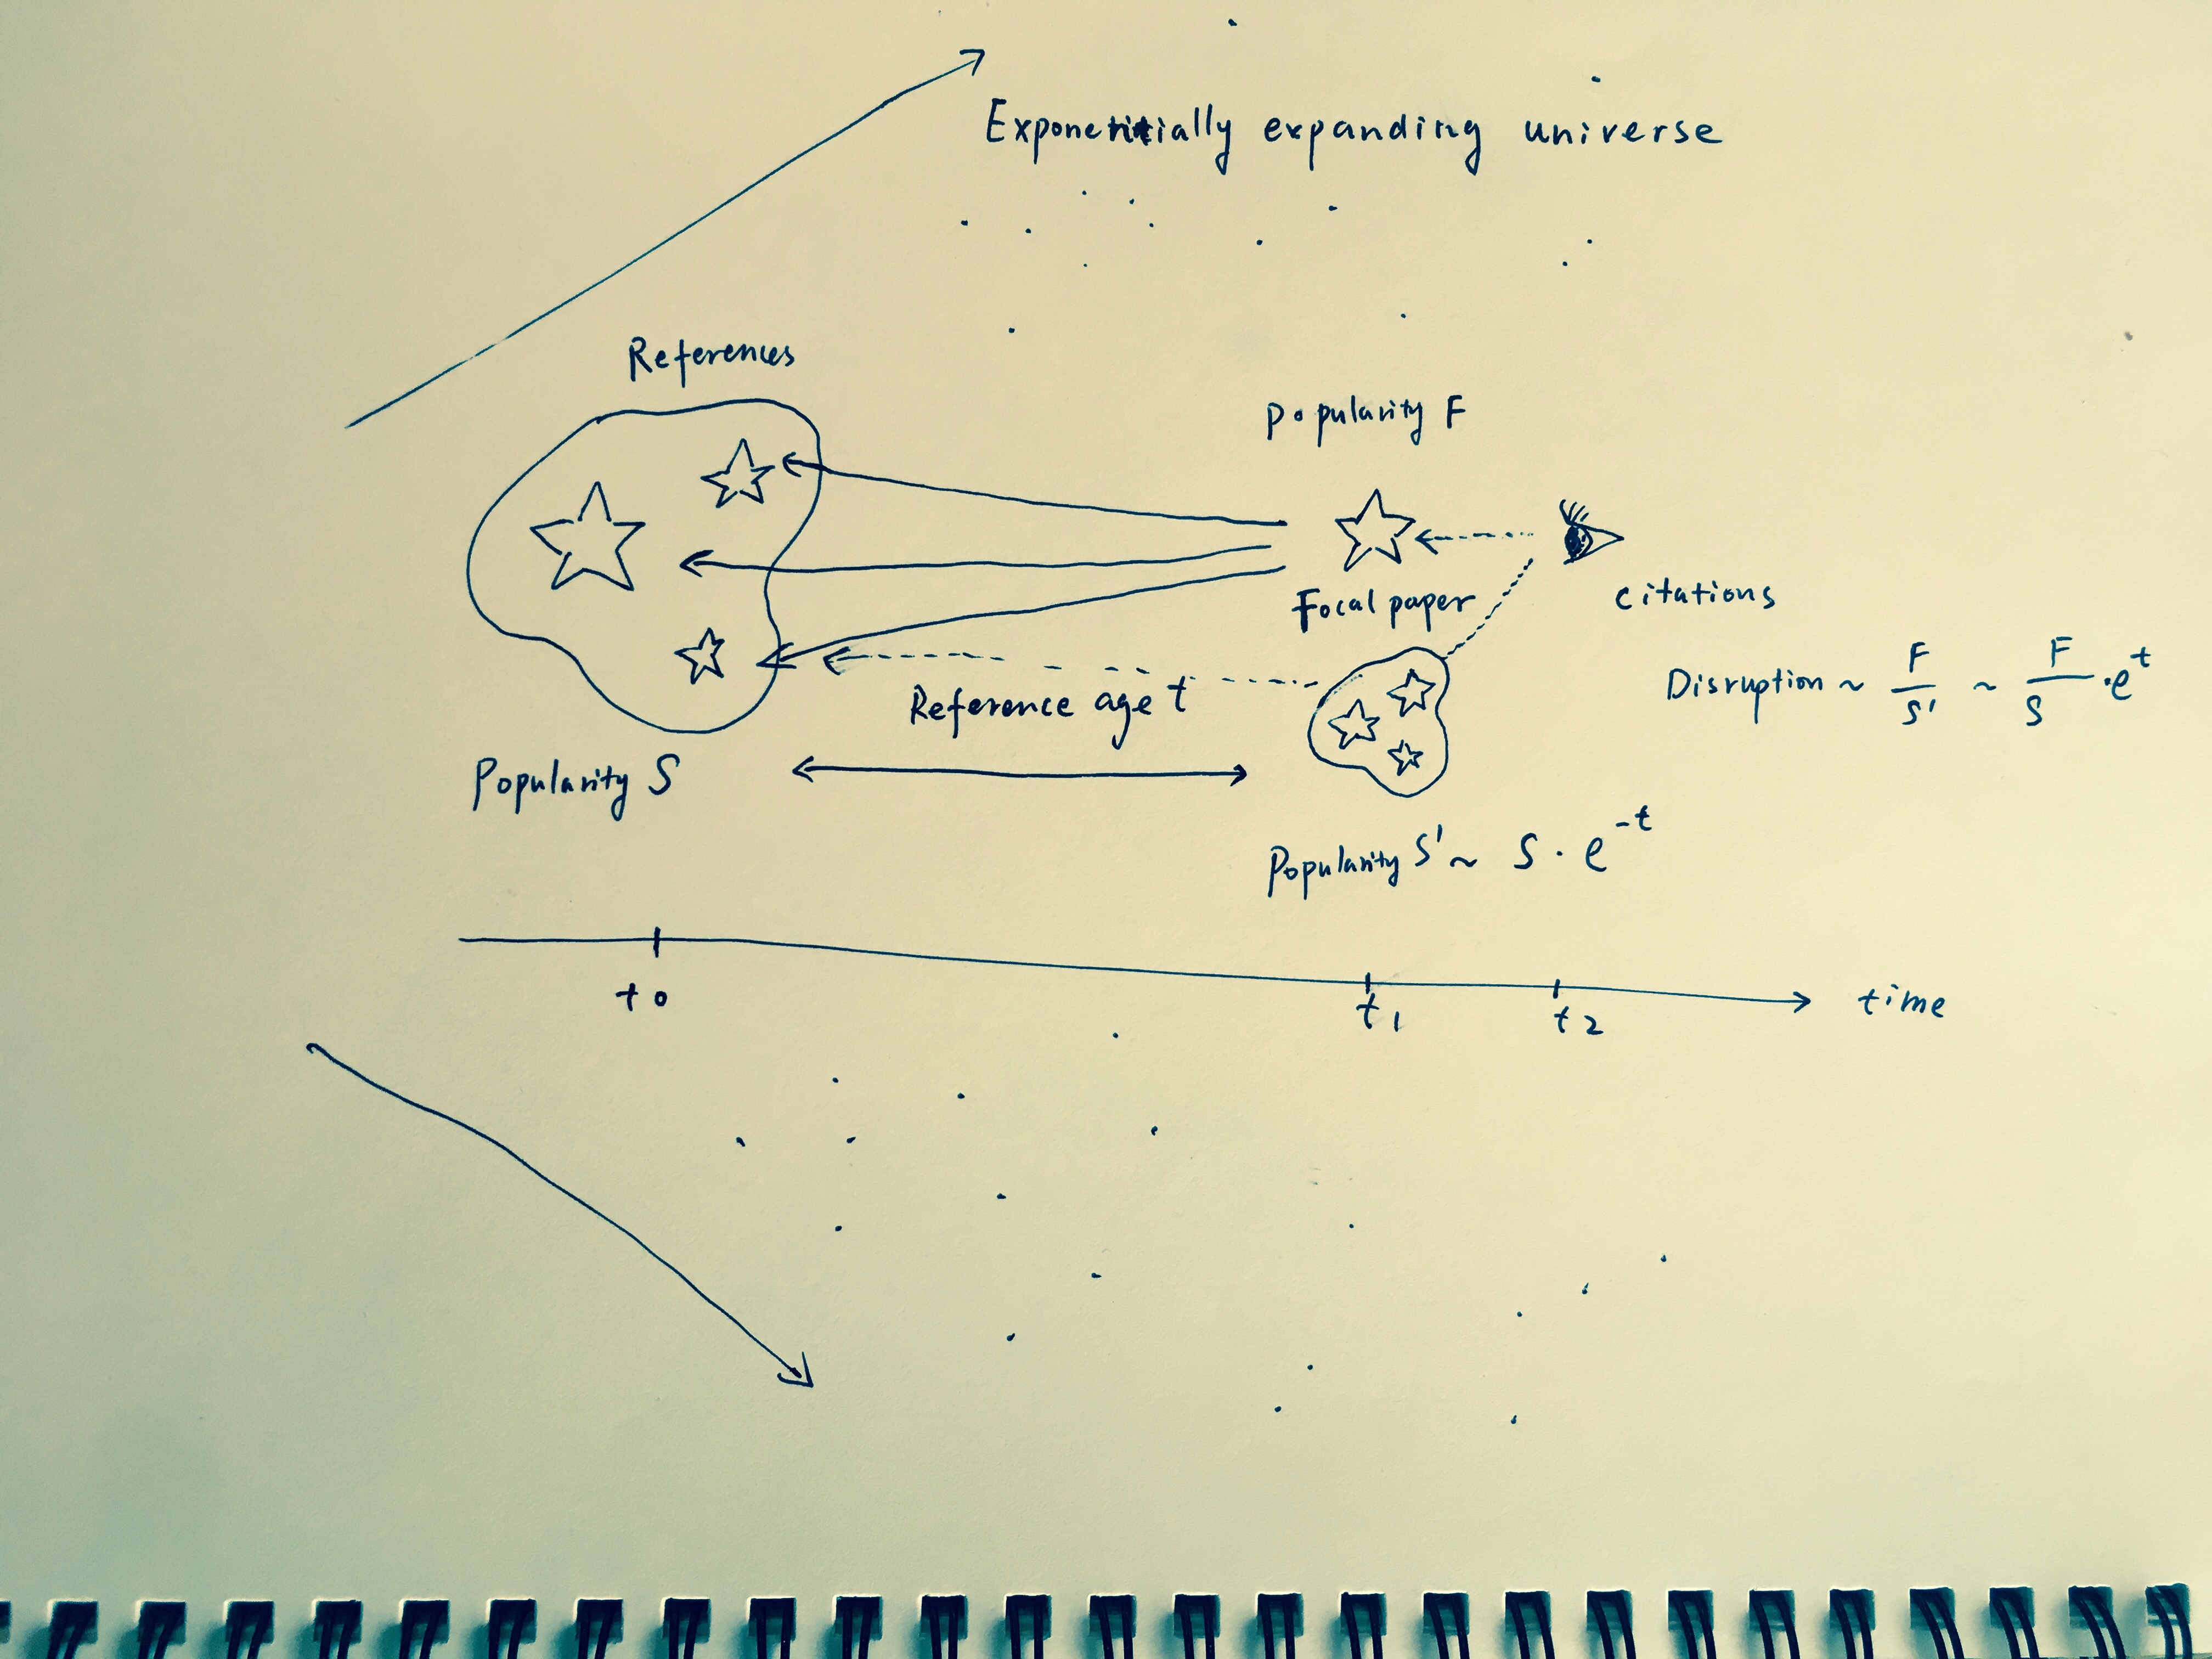 Exponentially expanding universe
References
Popularity F
Focal paper
citations
Disruption ~ F/S' ~ F/S · e^t
Reference age t
Popularity S
Popularity S' ~ S · e^-t
t0
t1
t2
time